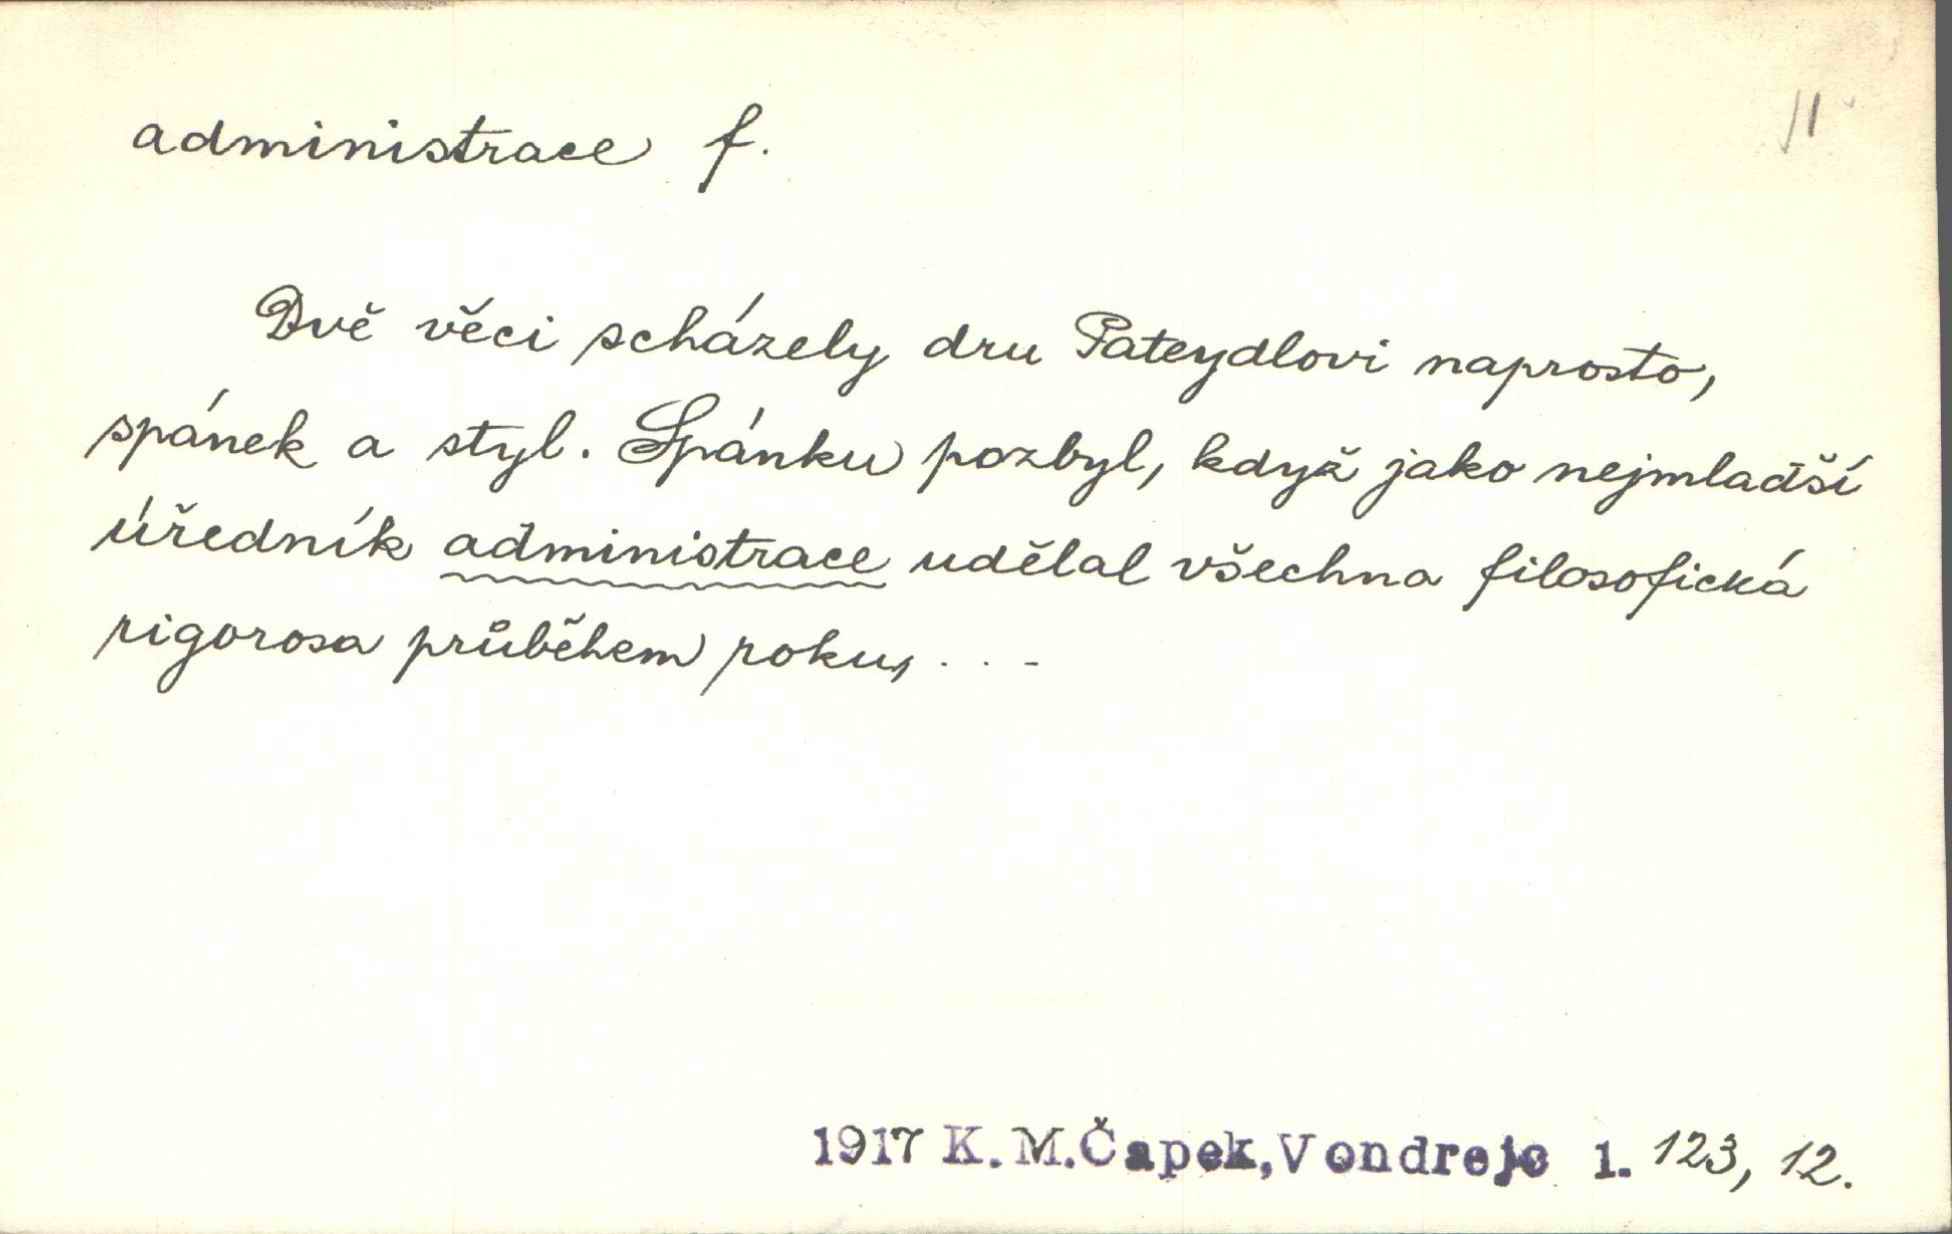 administrace f.
11
Dvě věci scházely dru Pateydlovi naprosto,
spánek a styl. Spánku pozbyl, když jako nejmladší
úředník administrace udělal všechna filosofická
rigorosa průběhem roku, ...
1917 K. M. Čapek, Vondrejc 1. 123, 12.